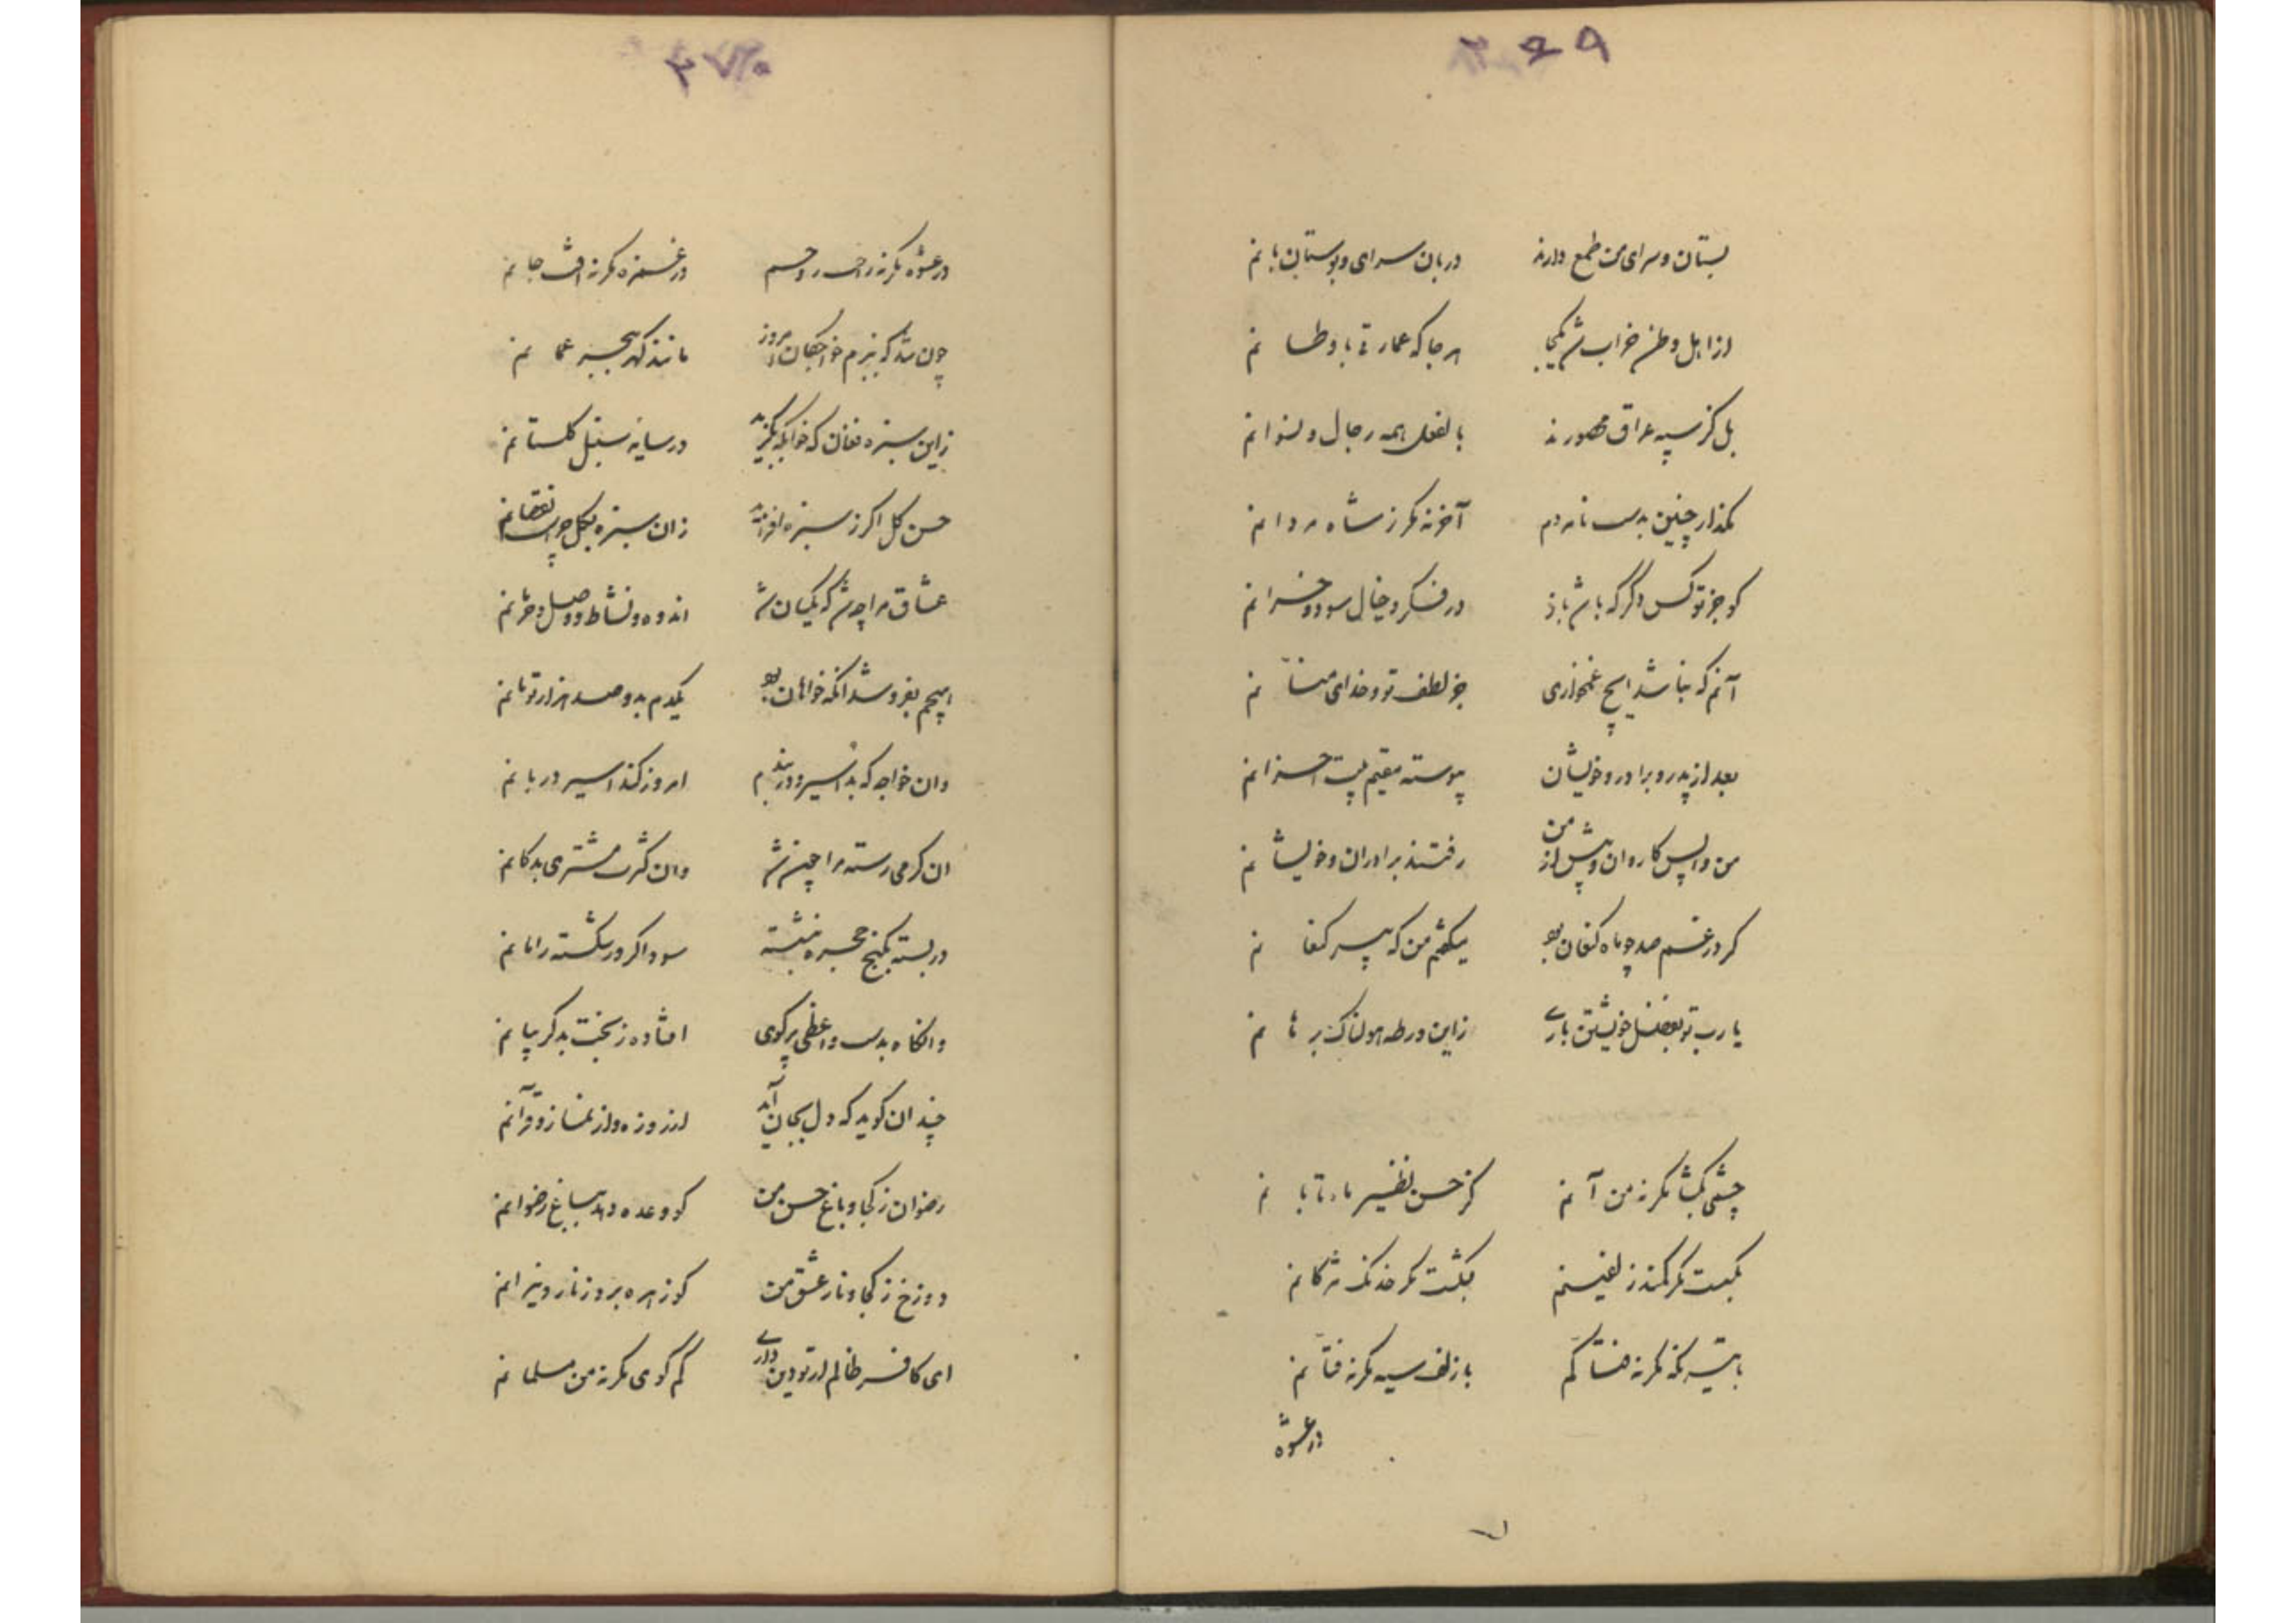 ۳۶۹
بستان و سرای من طمع دارند دربان سرای و بوستان بانم
از اهل وطن خراب شد یکجا هرجا که عمارتی باوطانم
بل کز سپه عراق مقهورند بالفعل همه رجال و نسوانم
مگذار چنین بدست نامردم آخر نه مگر ز شاه مردانم
کو جز تو کس دگر که باشد باز در فکر و خیال سود و خسرانم
آنم که نباشد ایچ غمخواری جز لطف تو و خدای منّانم
بعد از پدر و برادر و خویشان پیوسته مقیم بیت احزانم
من واپس کاروان و پیش از من رفتند برادران و خویشانم
کر در غم صد چو ماه کنعان بو میکفتم من که پیر کنعانم
یا رب تو بفضل خویشتن باری زاین ورطه هولناک برهانم
چشمی بکشا مکر نه من آنم کز حسن نظیر ماه تابانم
بکسست مکر کمند زلفینم بکشت مکر خدنک مژکانم
با تیر نکه مکر نه فتاکم با زلف سیه مکر نه فتّانم
در عشوه
۳۷۰
در عشوه مکر نه راحت روحم در غمزه مکر نه آفت جانم
چون شد که ببزم خواجکان امروز مانند کهر ببحر عمانم
زاین سبزه فغان که خوابکه بکزید در سایه سنبل کلستانم
حسن کل اکر ز سبزه افزاید زان سبزه بکل چراست نقصانم
عشاق مرا چه شد که یکسان شد اندوه و نشاط و وصل و حرمانم
هیچم بفروشد آنکه خواهان بو یکدم بدو صد هزار تومانم
وان خواجه که بد اسیر و دربندم امروز کند اسیر دربانم
ان کرمی رسته مرا چیز شد وان کثرت مشتری بدکانم
در بسته بکنج حجره بنشسته سوداکر ورشکسته را مانم
وانکاه بدست واعظی پرکوی افتاده ز بخت بد کریبانم
چندان کوید که دل بجان آید از روزه و از نماز و قرآنم
رضوان ز کجا و باغ حسن من کو وعده دهد بباغ رضوانم
دوزخ ز کجا و نار عشق من کو زهره برد ز نار و نیرانم
ای کافر ظالم ار تو دین داری کم کوی مکر نه من مسلمانم